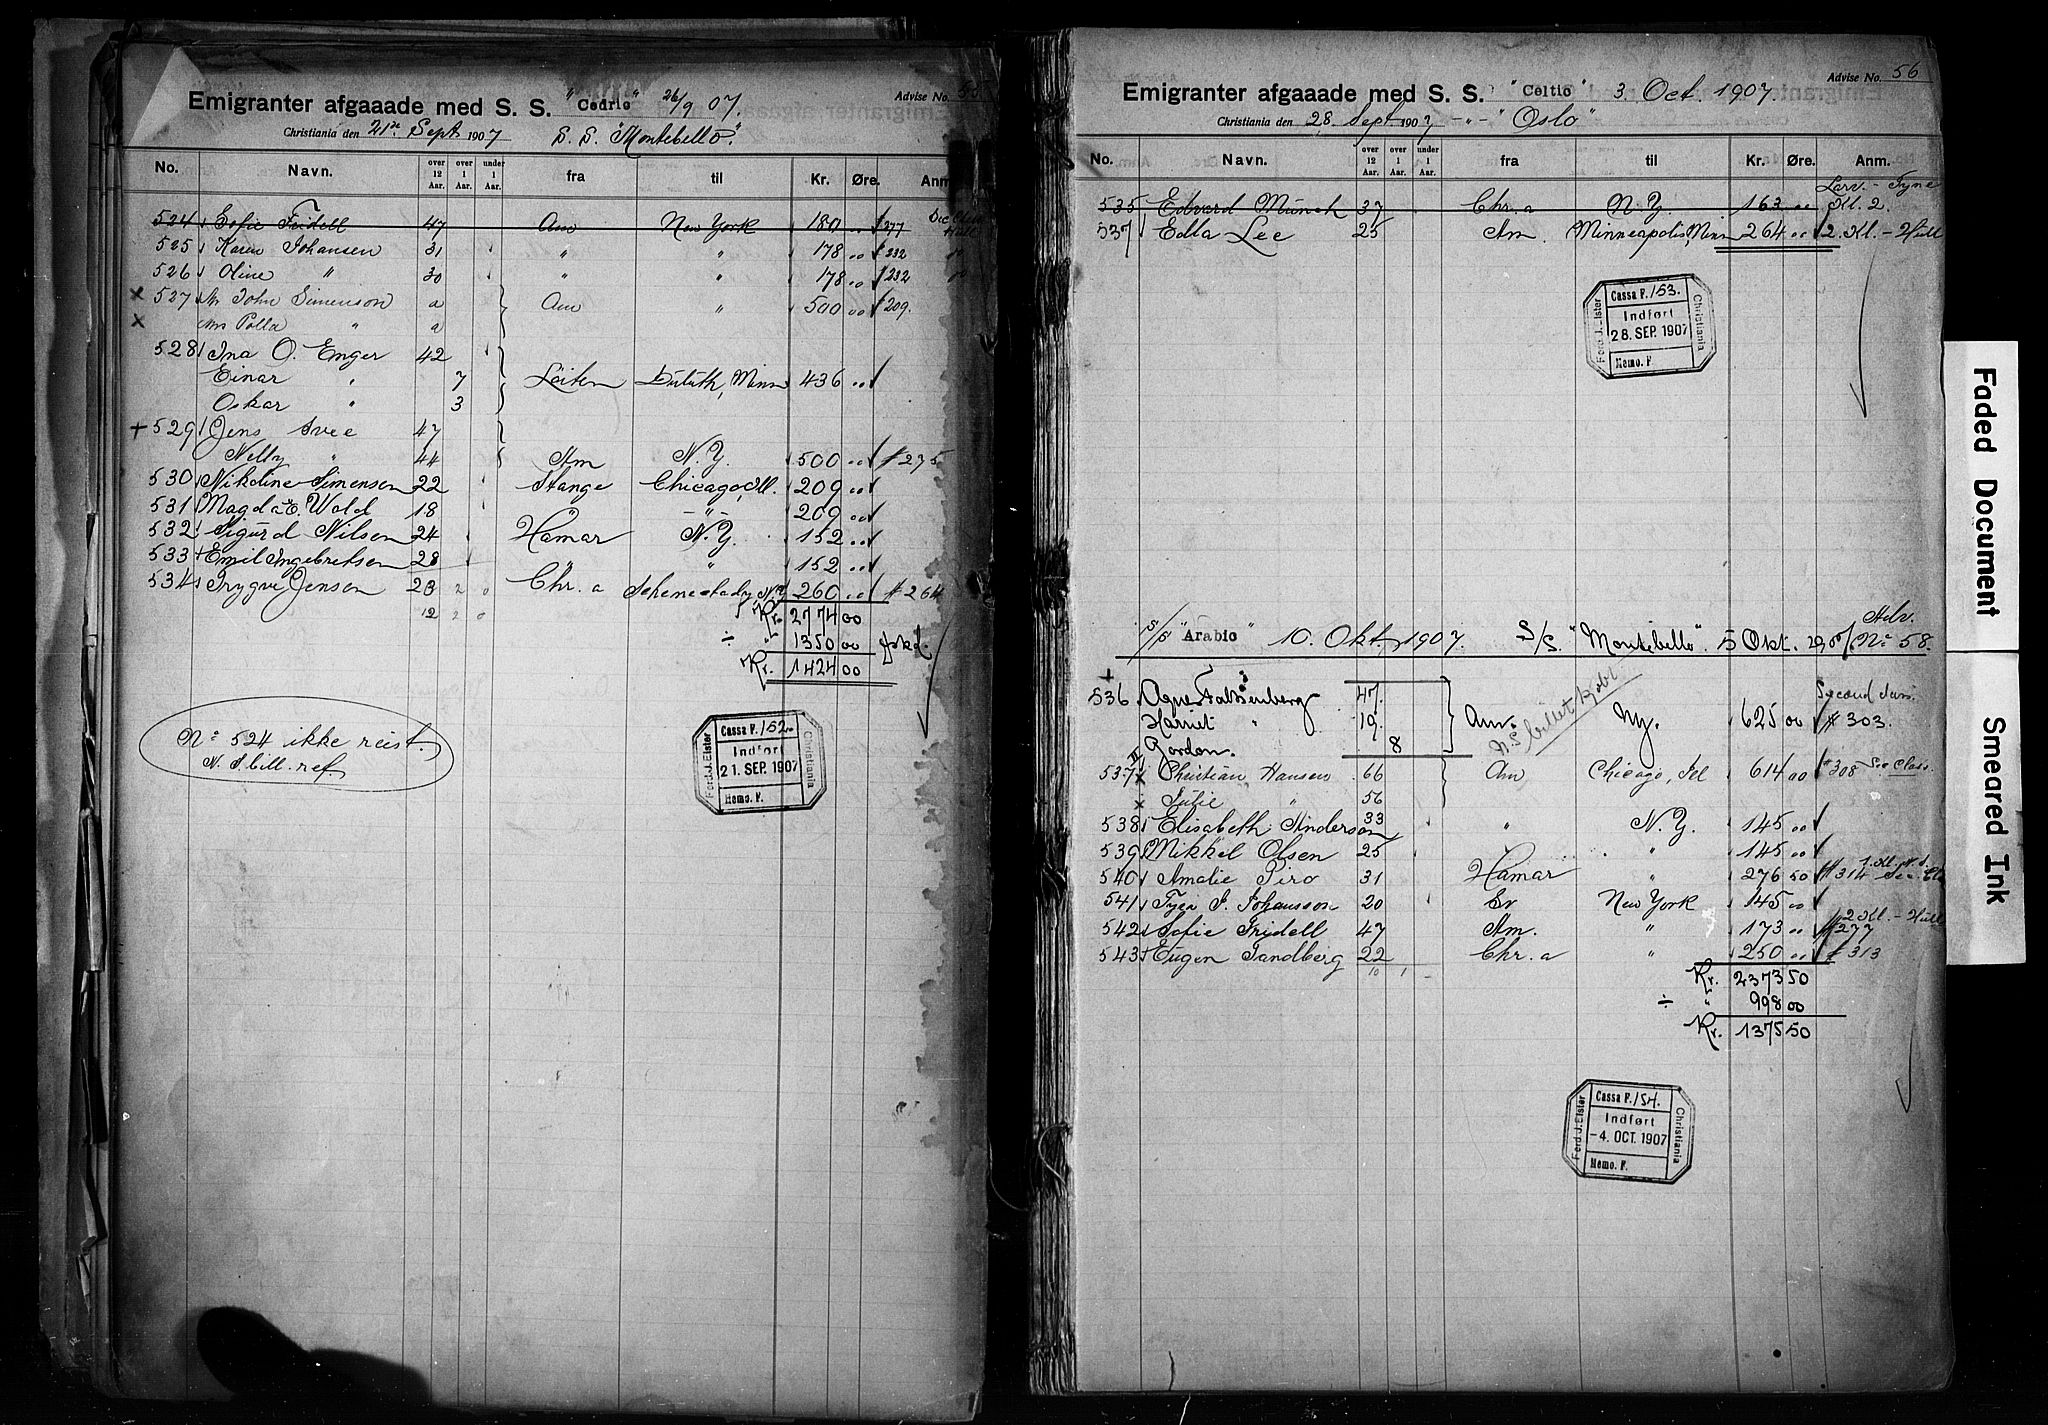 Emigranter afgaaade med S. S. "Cedric" 26/9 07. Advise No.
Christiania den 21de Sept. 1907 S. S. "Montebello".
No. Navn. over 12 Aar. over 1 Aar. under 1 Aar. fra til Kr. Øre. Anm
524 Sofie Fridell 47 Am New York 180 # 277
525 Karen Johansen 31 " " 178 00 # 232
526 Oline " 30 " " 178 00 # 232
527 Mr John Simenson a Am " 500 00 # 209.
Mrs Polla " a
528 Ina O. Enger 42
Einar " 7 Leiten Duluth, Minn 436 00
Oskar " 3
529 Jens Svee 47
Nelly " 44 Am N.Y. 500 00 # 275
530 Nikoline Simensen 22 Stange Chicago, Ill. 209 00
531 Magda E. Wold 18 -"- 209 00
532 Sigurd Nilsen 24 Hamar N.Y. 152 00
533 Emil Ingebretsen 28 " " 152 00
534 Trygve Jensen 23 2 0 Chr.a Schenectady N.Y. 260 00 # 264
12 2 0 Kr. 2774 00
÷ " 1350 00
Kr. 1424 00
No 524 ikke reist.
N. S. bill. ref.
Cassa F. 152
Indført
21. SEP. 1907
Memo. F.
Ferd. J. Elster
Christiania
Emigranter afgaaade med S. S. "Celtic" 3. Oct. 1907. Advise No. 56
Christiania den 28 Sept 1907 -"- "Oslo"
No. Navn. over 12 Aar. over 1 Aar. under 1 Aar. fra til Kr. Øre. Anm.
535 Edvard Münch 37 Chr.a N.Y. 163 00 Larv. - Tyne Kl. 2.
537 Edla Lee 25 Am. Minneapolis, Minn 264 00 2. Kl. - Hull
Cassa F. 153.
Indført
28. SEP. 1907
Memo. F.
Ferd. J. Elster
Christiania
S/S "Arabic" 10. Okt. 1907. S/S. "Montebello" 5 Okt. 1907 Adv. No 58.
536 Agnes Falkenberg 47. Second Class.
Harriet " 19. Am. N.S. billet kjøbt Ny. 625 00 # 303.
Gordon. 8
537 II Christian Hansen 66 Am Chicago, Ill 614 00 # 308 Sec Class.
Julie " 56
538 Elisabeth Anderson 33 " N.Y. 145 00
539 Mikkel Olsen 25 " " 145 00
540 Amalie Piro 31 Hamar " 276 50 # 314
541 Tyra J. Johansson 20 Ev New York 145 00
542 Sofie Fridell 47 Am. " 173 00 # 277 2 Kl. - Hull
543 Eugen Sandberg 22 Chr.a " 250 00 # 313
10 1 - Kr. 2373 50
÷ " 998 00
Kr. 1375 50
Cassa F. 154.
Indført
-4. OCT. 1907
Memo. F.
Ferd. J. Elster
Christiania
Faded Document
Smeared Ink